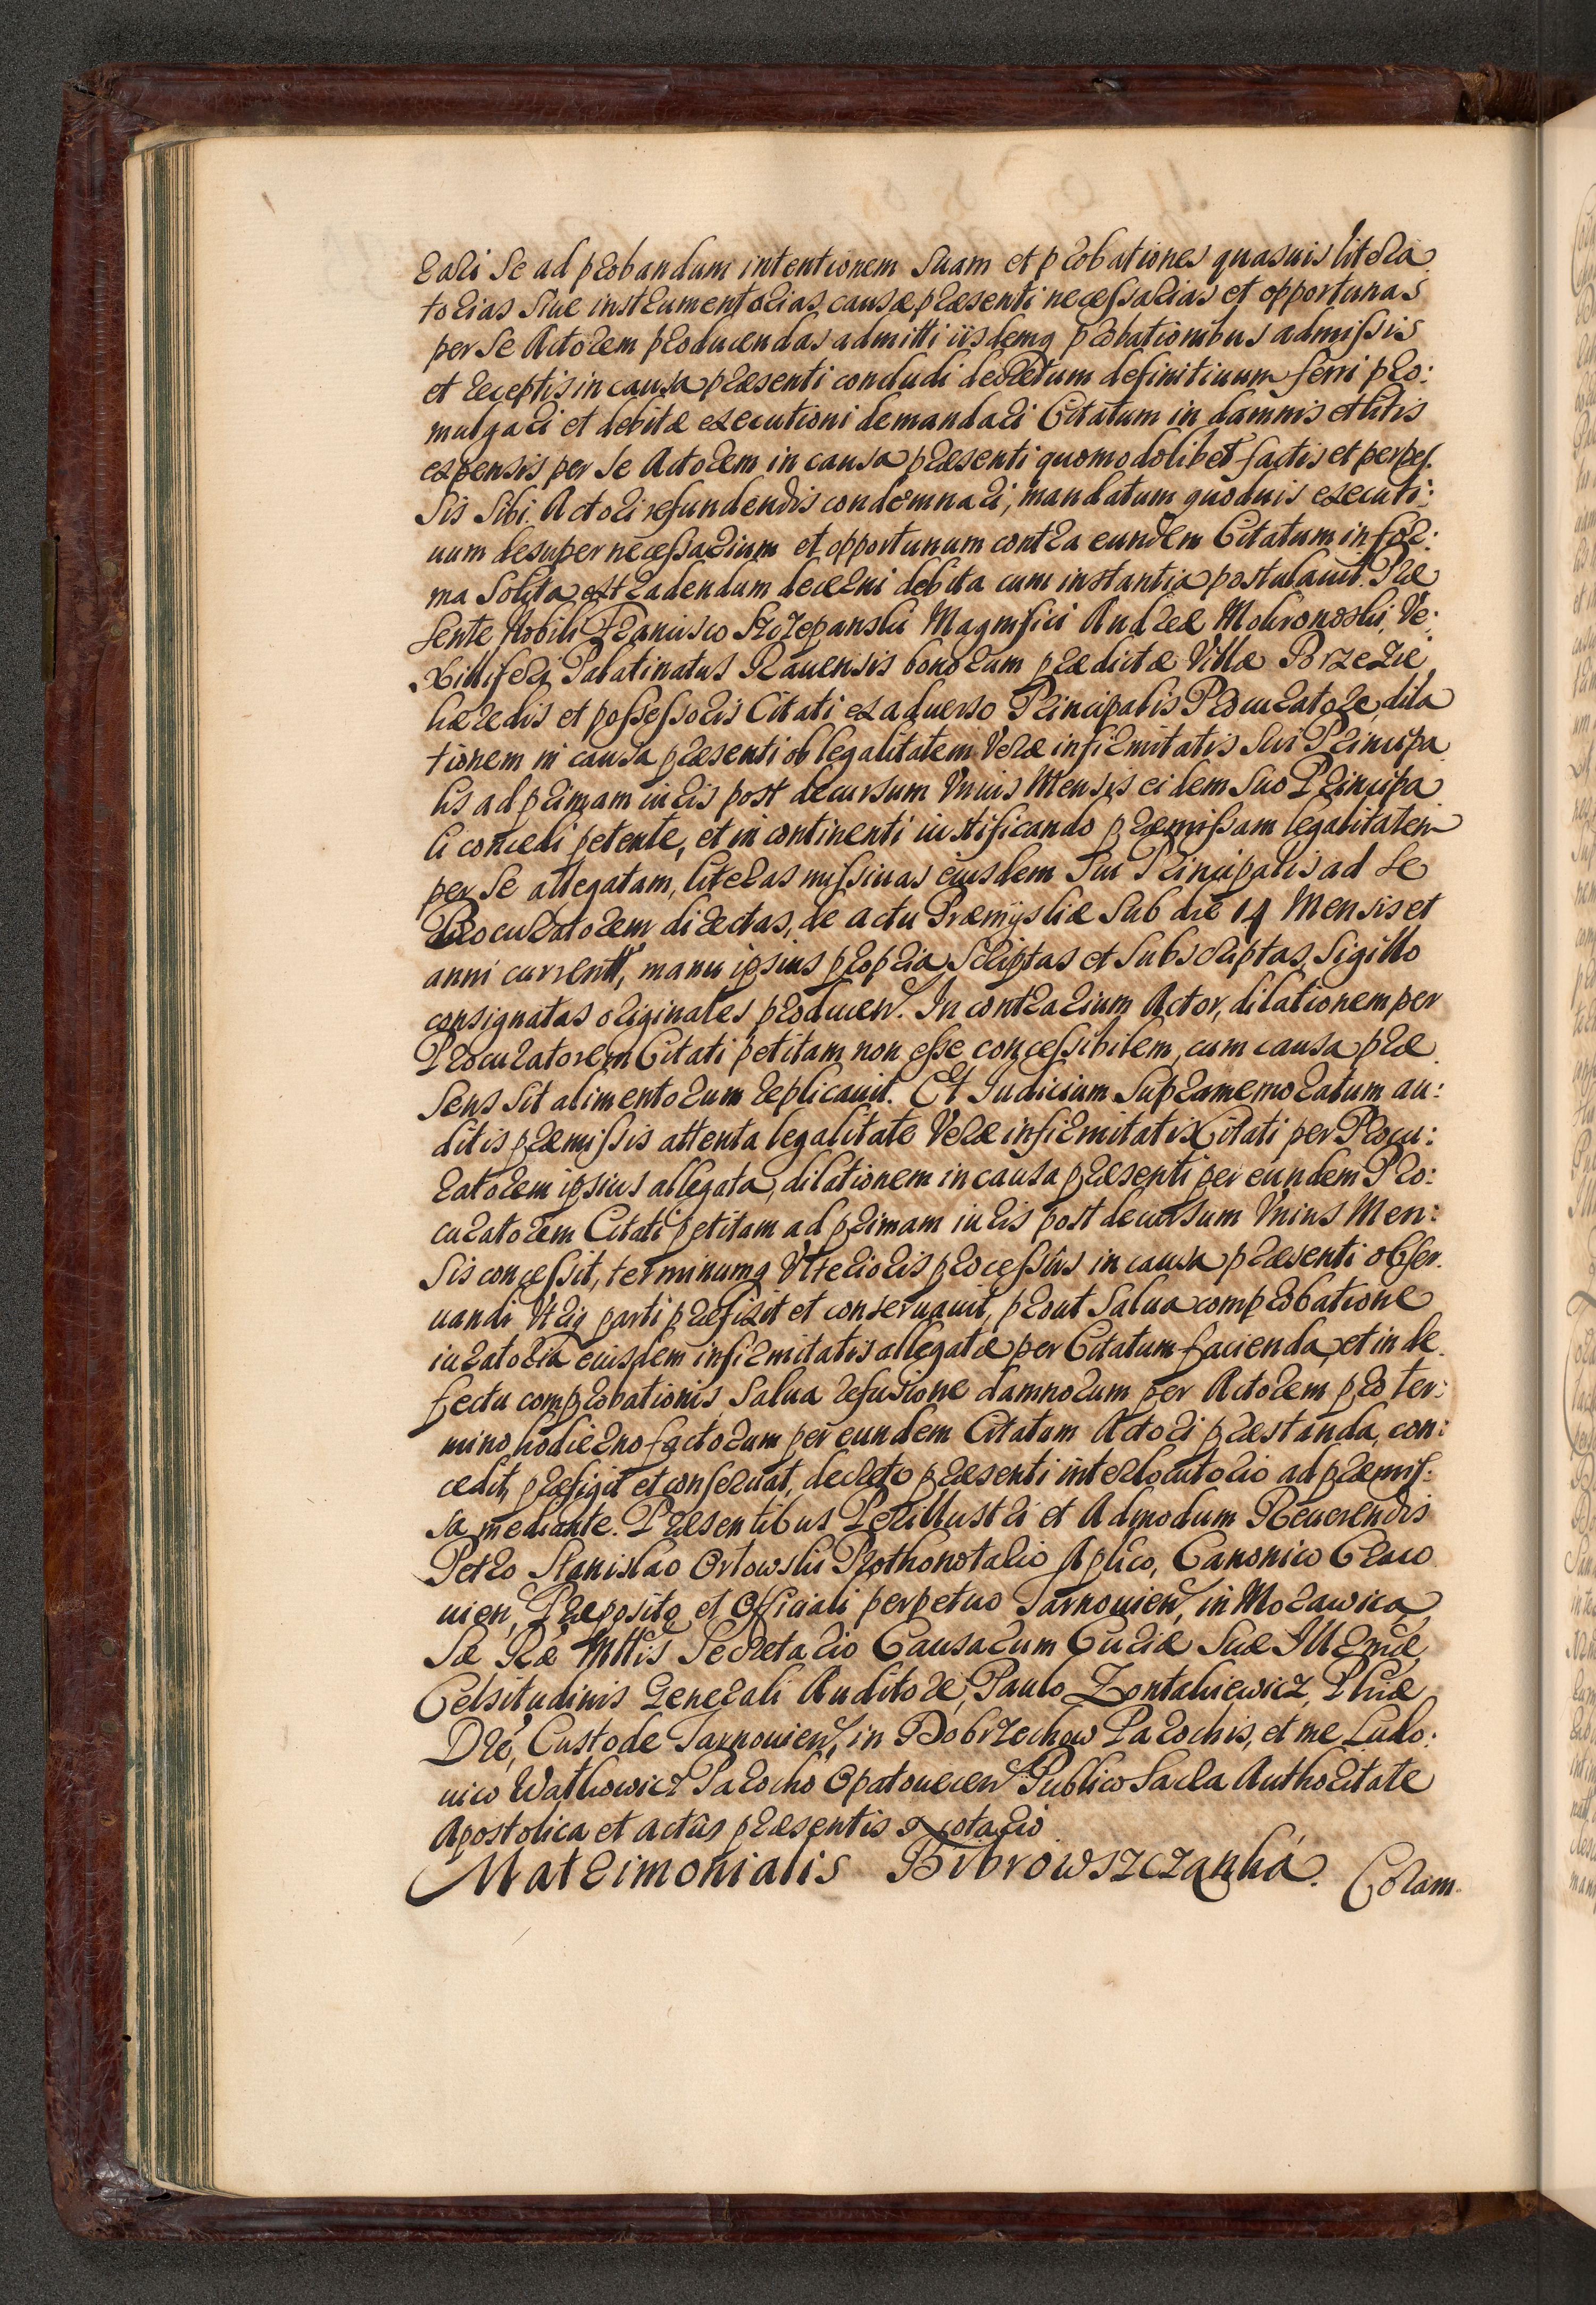 rari se ad probandum intentionem suam et probationes quasuis litera
torias siue instrumentorias causæ præsenti necessarias et opportunas
per se Actorem producendas admitti iisdemq probationibus admissis
et receptis in causa præsenti concludi decretum definitiuum ferri pro:
mulgari et debitæ executioni demandari Citatum in damnis et litis
expensis per se Actorem in causa præsenti quomodolibet factis et perpes.
sis sibi Actori refundendis condemnari, mandatum quoduis executi:
uum desuper necessarium et opportunum contra eundem Citatum in for:
ma solita extradendum decerni debita cum instantia postulauit. Præ
sente Nobili Francisco Szczepanski Magnifici Andreæ Mokronoski Ve:
xilliferi Palatinatus Rauensis bonorum prædictæ Villæ Borzezie
hæredis et possessoris Citati ex aduerso Principalis Procuratore, dila
tionem in causa præsenti ob legalitatem veræ infirmitatis sui Principa
lis ad primam iuris post decursum Vnius Mensis eidem suo Principa
li concedi petente, et in continenti iustificando præmissam legalitatem
per se allegatam, literas missiuas eiusdem sui Principalis ad se
Procuratorem directas, de actu Præmijsliæ sub die 14 Mensis et
anni currentt, manu ipsius propria scriptas et subscriptas, sigillo
consignatas originales producen. In contrarium Actor, dilationem per
Procuratorem Citati petitam non esse concessibilem, cum causa præ
sens sit alimentorum replicauit. Et Iudicium supramemoratum au:
ditis præmissis attenta legalitate veræ infirmitatis Citati per Procu:
ratorem ipsius allegata, dilationem in causa præsenti per eundem Pro:
curatorem Citati petitam ad primam iuris post decursum Vnius Men:
sis concessit, terminumq Vlterioris processus in causa præsenti obser.
uandi Vtriq parti præfixit et conseruauit, prout salua comprobatione
iuratoria eiusdem infirmitatis allegatæ per Citatum facienda, et in de.
fectu comprobationis salua refusione damnorum per Actorem pro ter:
mino hodierno factorum per eundem Citatum Actori præstanda, con:
cedit, præfigit et conseruat, decreto præsenti interlocutorio ad præmis:
sa mediante. Præsentibus Perillustri et Admodum Reuerendis
Petro Stanislao Orłowski Prothonotario Aplico, Canonico Craco
uien, Præposito et Officiali perpetuo Tarnouien, in Morawica
Sæ Ræ Mttis Secretario Causarum Curiæ Suæ Ill Emæ
Celsitudinis Generali Auditore, Paulo Zontakiewicz, Phiæ
Dre, Custode Tarnouien, in Dobrzechow Parochis, et me Ludo:
uico Wathowicz Parocho Opatouecen Publico Sacra Authoritate
Apostolica et actus præsentis Notario
Matrimonialis Bibrowszczanká. Coram